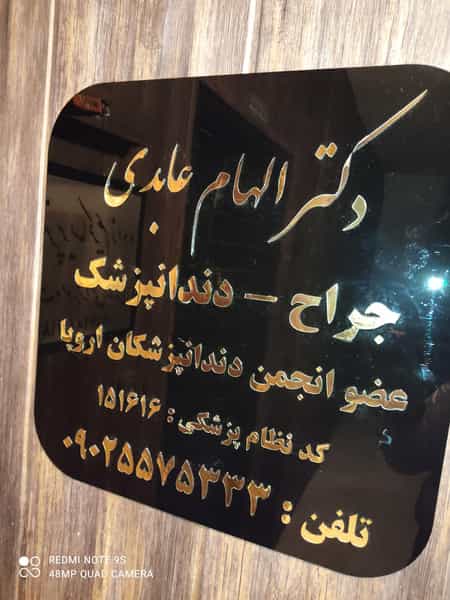 دکتر الهام عابدی
جراح – دندانپزشک
عضو انجمن دندانپزشکان اروپا
کد نظام پزشکی : ۱۵۱۶۱۶
تلفن : ۰۹۰۲۵۵۷۵۳۳۳
REDMI NOTE 9S
48MP QUAD CAMERA